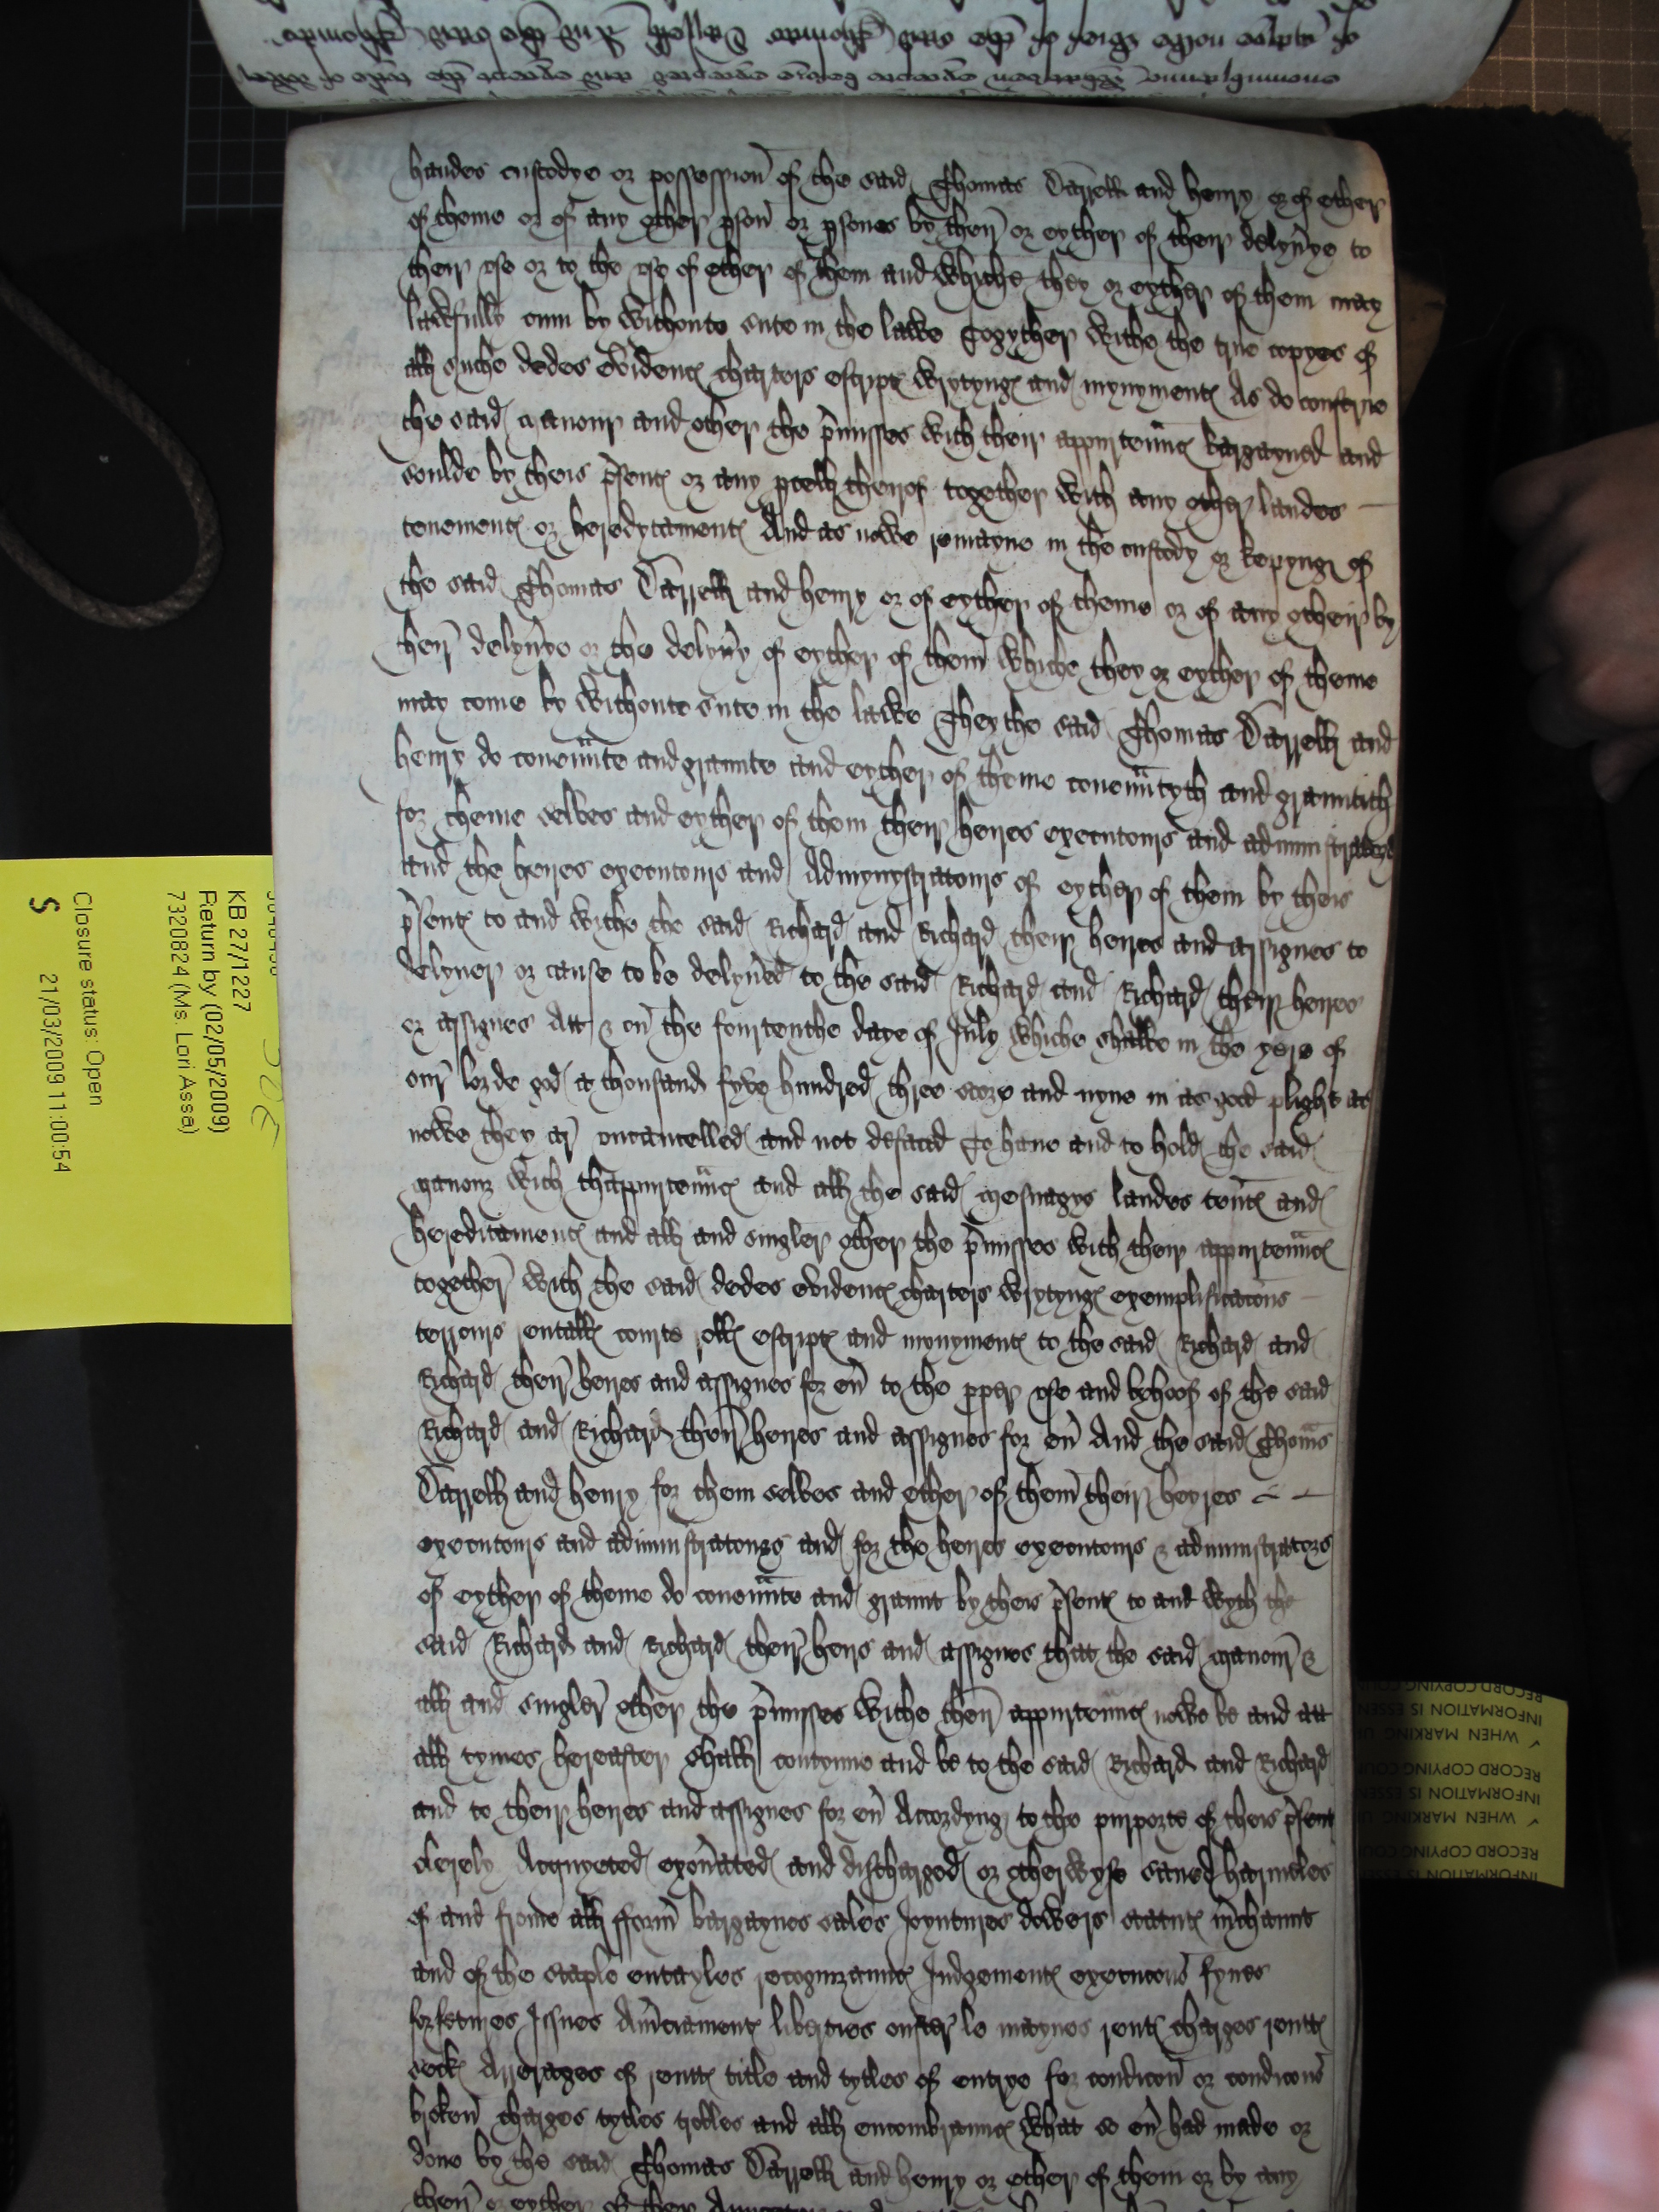 handes custodye or possession of the said Thomas Darrell and henry or of ether
of theme or of any other pson or psones by their or eyther of their delyuye to
their vse or to the vse of ether of them and whiche they or eyther of them may
lawfully cum by withoute sute in the lawe Togyther withe the true copyes of
all suche dedes evidenc charters escript wrytyng and mynyment As do conserne
the said manour and other the pmisses with their appurtennc bargayned and
soulde by theis psent or any pcell therof together with any other landes
tenement or heredytament And as nowe remayne in the custody or kepyng of
the said Thomas Darrell and henry or of eyther of theme or of any other by
their delyuye or the delyuy of eyther of them whiche they or eyther of theme
may come by withoute sute in the lawe They the said Thomas Darrell and
henry do couennte and graunte and eyther of theme couenntyth and grauntith
for theme selves and eyther of them their heires executours and administratours
and the heires executours and Admynystratours of eyther of them by theis
psent to and withe the said Richard and Richard their heires and assignes to
delyuer or cause to be delyued to the said Richard and Richard their heires
or assignes Att & on the fourtenthe daye of July whiche shalbe in the yere of
our lorde god a thousand fyve hundred three score and nyne in as good plight as
nowe they ar uncancelled and not defaced To haue and to hold the said
manour with thappurtennc and all the said mesuagys landes tent and
hereditament and all and singler other the pmisses with their appurtennc
together with the said dedes evidenc charters wrytyng exemplificacons
terrours rentall courte roll escript and monyment to the said Richard and
Richard their heires and assignes for eu to the pper vse and byhoof of the said
Richard and Richard their heires and assignes for eu And the said Thoms
Darrell and henry for them selves and ether of them their heyres
executours and administratours and for the heires executours & administrators
of eyther of theme do couennte and graunt by theis psent to and wyth the
said Richard and Richard their heirs and assignes that the said manour &
all and singler other the pmisses withe their appurtennc nowe be and att
all tymes hereafter shall contynue and be to the said Richard and Richard
and to their heires and assignes for eu Accordyng to the purporte of theis psent
clerely Acquyeted exonated and discharged or otherwyse saued harmeles
of and frome all fform bargaynes sales Joyntures dowers statut mchaunt
and of the staple entayles recognizaunc Judgement execucons fynes
forfetures Issues Amciament liberties ouster le maynes rent charges rentt
seck Arrerages of rentt title and tytles of entrye for condicon or condicons
broken charges tytles trobles and all encombraunc what so eu had made or
done by the said Thomas Darrell and henry or ether of them or by any
their or eyther of their
KB 27/1227
Return by (02/05/2009)
7320824 (Ms. Lori Asse)
Closure status: Open
S 21/03/2009 11:00:54
RECORD COPYING
INFORMATION IS
✓ WHEN MARKING
RECORD COPYING
INFORMATION IS
✓ WHEN MARKING
RECORD COPYING